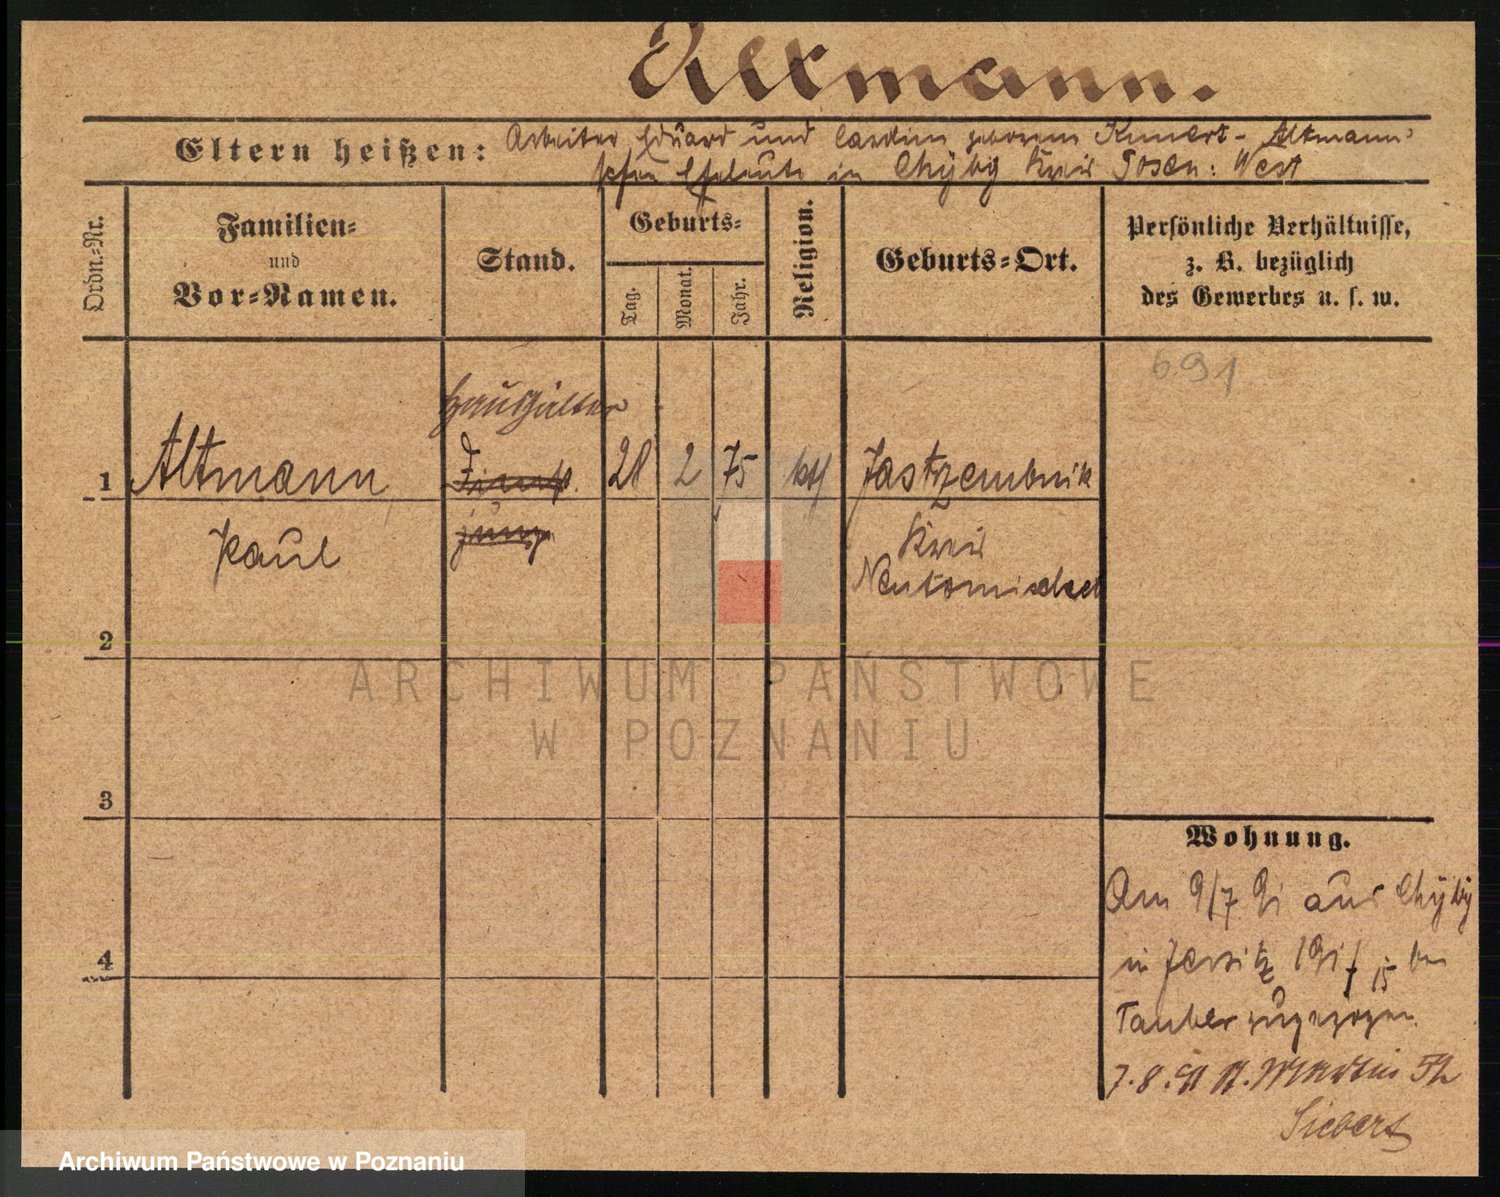 Altmann.
Eltern heißen: Arbeiter Eduard und geborene Kunert - Altmann'
schen Eheleute in Chÿby Kreis Posen: West
Ordn.-Nr.
Familien-
und
Vor-Namen.
Stand.
Geburts-
Tag.
Monat.
Jahr.
Religion.
Geburts-Ort.
Persönliche Verhältnisse,
z. B. bezüglich
des Gewerbes u. s. w.
691
Haushälter
1 Altmann 28 2 75 kth Jastrzembnik
Paul
jung
Kreis
Neutomischel
2
3
4
ARCHIWUM PAŃSTWOWE
W POZNANIU
Wohnung.
Am 9/7 91 aus Chÿby
in Jersitz 15 bei
Tauber zugezogen.
7.8.91 St. Martin 52
Siebert
Archiwum Państwowe w Poznaniu